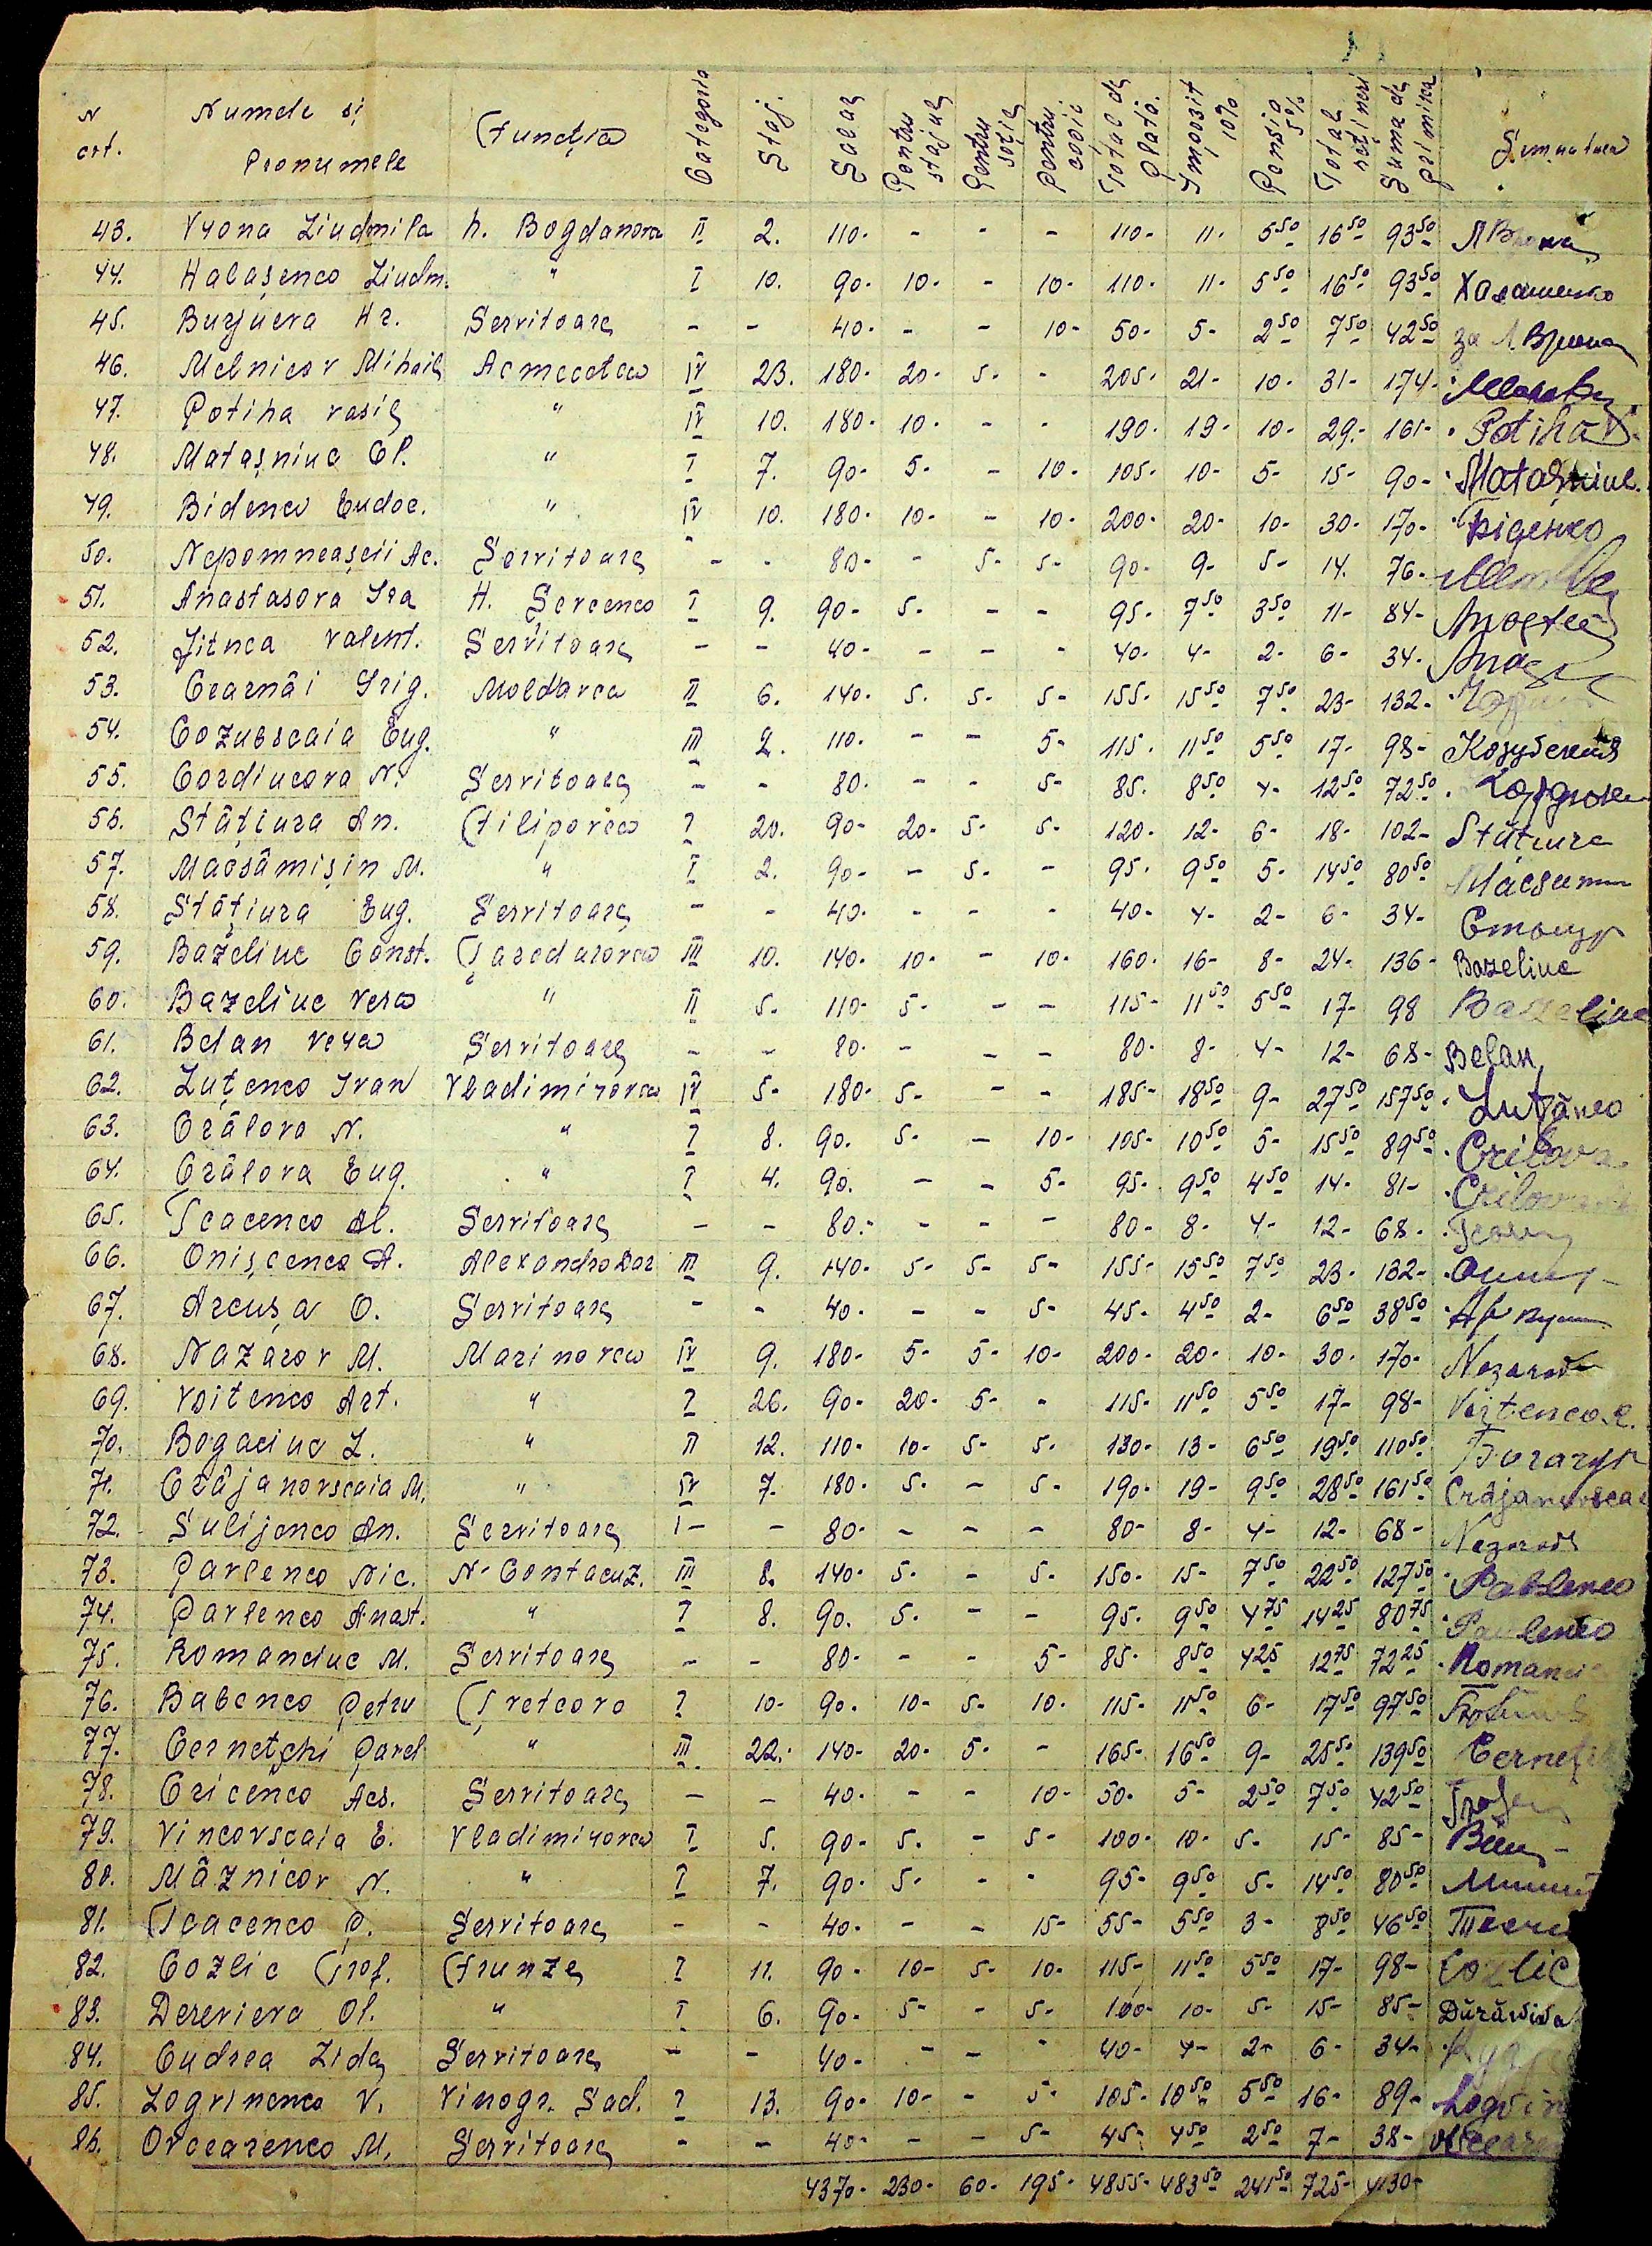 N crt. Numele si Pronumele Funcția Categoria Staj. Salar Pentru stajul Pentru soție pentru copii Total de plată. Impozit 10% Pensia 5% Total rețineri Suma de primire Semnatura
43. Vrona Liudmila h. Bogdanova II 2. 110. - - - 110- 11- 5 50 16 50 93 50
44. Halașenco Liudm. " I 10. 90- 10- - 10- 110- 11- 5 50 16 50 93 50 Халашенко
45. Burjueva Hr. Servitoare - - 40- - - 10- 50- 5- 2 50 7 50 42 50 за Л. Врона
46. Melnicov Mihail Acmecetca IV 23. 180- 20- 5- - 205- 21- 10- 31- 174-
47. Potiha Vasile " IV 10. 180- 10- - - 190- 19- 10- 29- 161- Potiha V.
48. Matașniuc El. " I 7. 90- 5- - 10- 105- 10- 5- 15- 90- Matașniuc.
49. Bidenco Eudoc. " IV 10. 180- 10- - 10- 200- 20- 10- 30- 170- Биденко
50. Nepomneașcii Ac. Servitoare - - 80- - 5- 5- 90- 9- 5- 14. 76-
51. Anastasova Ira H. Șevcenco I 9. 90- 5- - - 95- 7 50 3 50 11- 84-
52. Jitnca Valent. Servitoare - - 40- - - - 40- 4- 2- 6- 34-
53. Cearnâi Grig. Moldavca III 6. 140- 5- 5- 5- 155- 15 50 7 50 23- 132-
54. Cozubscaia Eug. " III 2. 110- - - 5- 115- 11 50 5 50 17- 98- Козубская
55. Cordiucova N. Servitoare - - 80- - - 5- 85- 8 50 4- 12 50 72 50
56. Stâțiura An. Filipovca I 20. 90- 20- 5- 5- 120- 12- 6- 18- 102- Stațiura
57. Macsâmișin M. " I 2. 90- - 5- - 95- 9 50 5- 14 50 80 50
58. Stâțiura Eug. Servitoare - - 40- - - - 40- 4- 2- 6- 34-
59. Bazeliuc Const. Țaredarovca III 10. 140- 10- - 10- 160- 16- 8- 24- 136- Bazeliuc
60. Bazeliuc Vera " II 5- 110- 5- - - 115- 11 50 5 50 17- 98 Bazeliuc
61. Belan Vera Servitoare - - 80- - - - 80- 8- 4- 12- 68- Belan
62. Luțenco Ivan Vladimirovca IV 5- 180- 5- - - 185- 18 50 9- 27 50 157 50 Luțânco
63. Crâlova N. " I 8. 90. 5- - 10- 105- 10 50 5- 15 50 89 50 Crilova
64. Crâlova Eug. " I 4. 90. - - 5- 95- 9 50 4 50 14- 81- Crilova
65. Tcacenco Al. Servitoare - - 80- - - - 80- 8- 4- 12- 68-
66. Onișcenco A. Alexandrodar III 9. 140- 5- 5- 5- 155- 15 50 7 50 23- 132-
67. Arcușa O. Servitoare - - 40- - - 5- 45- 4 50 2- 6 50 38 50
68. Nazarov M. Marinovca IV 9. 180- 5- 5- 10- 200- 20- 10- 30- 170- Nazarov
69. Voitenco Art. " I 26. 90- 20- 5- - 115- 11 50 5 50 17- 98- Voitenco
70. Bogaciuc L. " II 12. 110- 10- 5- 5- 130- 13- 6 50 19 50 110 50
71. Crâjanovscaia M. " IV 7. 180- 5- - 5- 190- 19- 9 50 28 50 161 50 Crâjanovscaia
72. Sulijenco An. Servitoare - - 80- - - - 80- 8- 4- 12- 68- Nazarov
73. Pavlenco Nic. N-Contacuz. III 8. 140- 5- - 5- 150- 15- 7 50 22 50 127 50 Pavlenco
74. Pavlenco Anast. " I 8. 90. 5- - - 95- 9 50 4 75 14 25 80 75 Pavlenco
75. Romanciuc M. Servitoare - - 80- - - 5- 85- 8 50 4 25 12 75 72 25 Romanciu
76. Babenco Petru Tretcoro I 10- 90- 10- 5- 10- 115- 11 50 6- 17 50 97 50
77. Cernețchi Pavel " III 22. 140- 20- 5- - 165- 16 50 9- 25 50 139 50 Cerneț
78. Cricenco Acs. Servitoare - - 40- - - 10- 50- 5- 2 50 7 50 42 50
79. Vincovscaia E. Vladimirovca I 5. 90- 5- - 5- 100- 10- 5- 15- 85-
80. Mâznicov N. " I 7. 90- 5- - - 95- 9 50 5- 14 50 80 50
81. Tcacenco P. Servitoare - - 40- - - 15- 55- 5 50 3- 8 50 46 50
82. Cozlic Trof. Frunze I 11. 90- 10- 5- 10- 115- 11 50 5 50 17- 98- Cozlic
83. Derevieva Ol. " I 6. 90- 5- - 5- 100- 10- 5- 15- 85-
84. Cudrea Lida Servitoare - - 40- - - - 40- 4- 2- 6- 34-
85. Logvinenco V. Vinogr. Sad. I 13. 90- 10- - 5- 105- 10 50 5 50 16- 89- Logvin
86. Ovcearenco M. Servitoare - - 40- - - 5- 45- 4 50 2 50 7- 38-
4370- 230- 60- 195- 4855- 483 50 241 50 725- 4130-